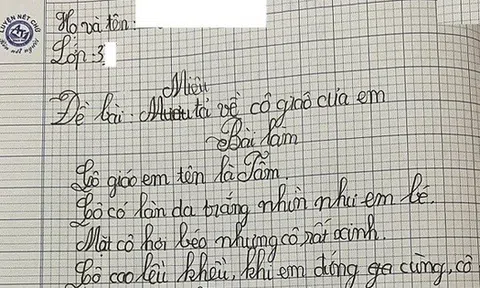 LUYỆN NÉT CHỮ
Rèn nét người
Họ và tên:
Lớp: 3
Miêu
Đề bài: Mưu tả về cô giáo của em
Bài làm
Cô giáo em tên là Tẫm.
Cô có làn da trắng nhìn như em bé.
Mặt cô hơi béo nhưng cô rất xinh.
Cô cao lêu khêu, khi em đứng gạ cùng, cô